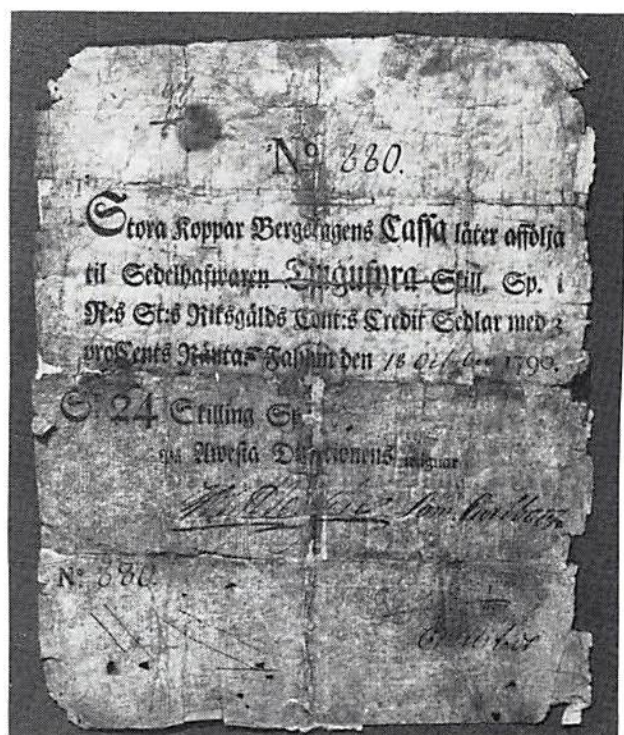 No 880.
Stora Koppar Bergslagens Cassa låter afföllja
til Sedelhafwaren Tingufyra Skill. Sp. i
R:s St:s Riksgälds Cont:s Credit Sedlar med 3
proCents Ränta. Fahlun den 18 October 1790.
S: 24 Skilling Sp.
på Awesta Directionens wägnar
No 880.